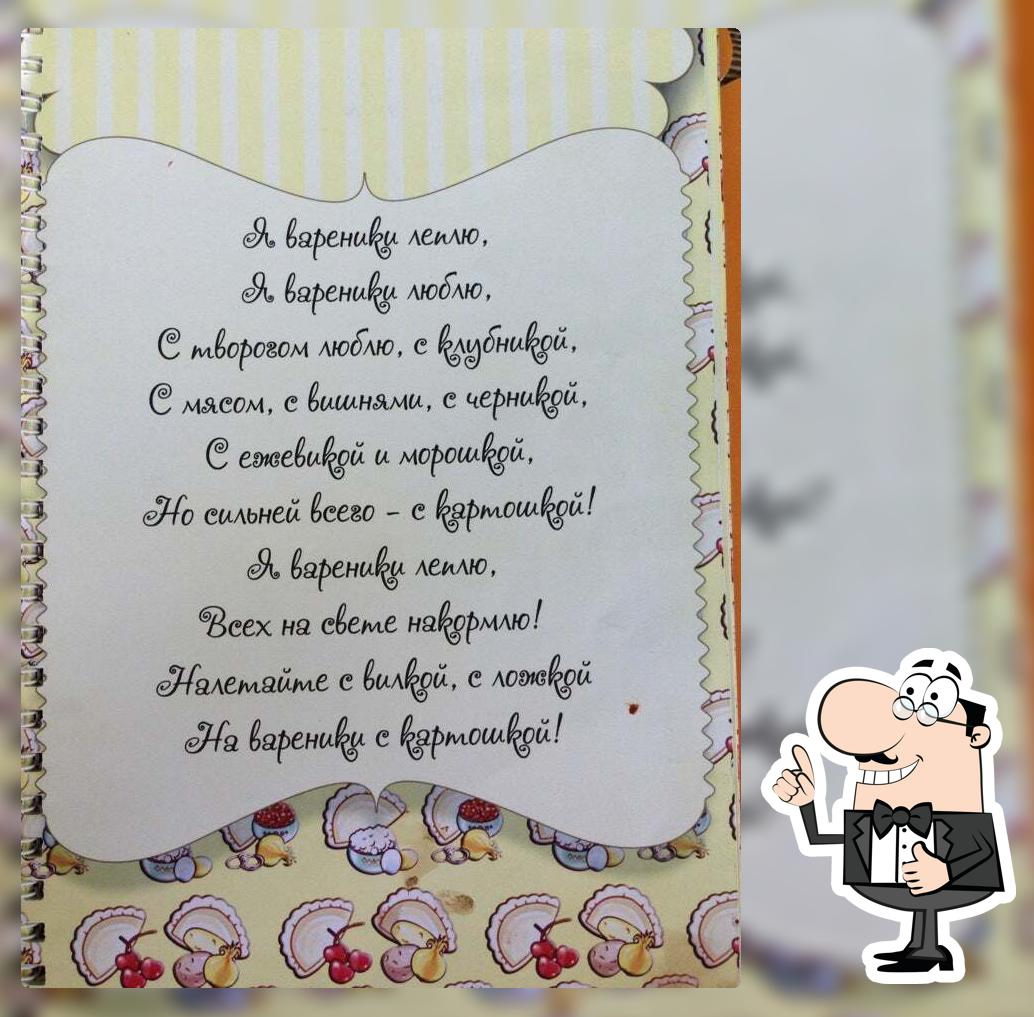 Я вареники леплю,
Я вареники люблю,
С творогом люблю, с клубникой,
С мясом, с вишнями, с черникой,
С ежевикой и морошкой,
Но сильней всего – с картошкой!
Я вареники леплю,
Всех на свете накормлю!
Налетайте с вилкой, с ложкой
На вареники с картошкой!